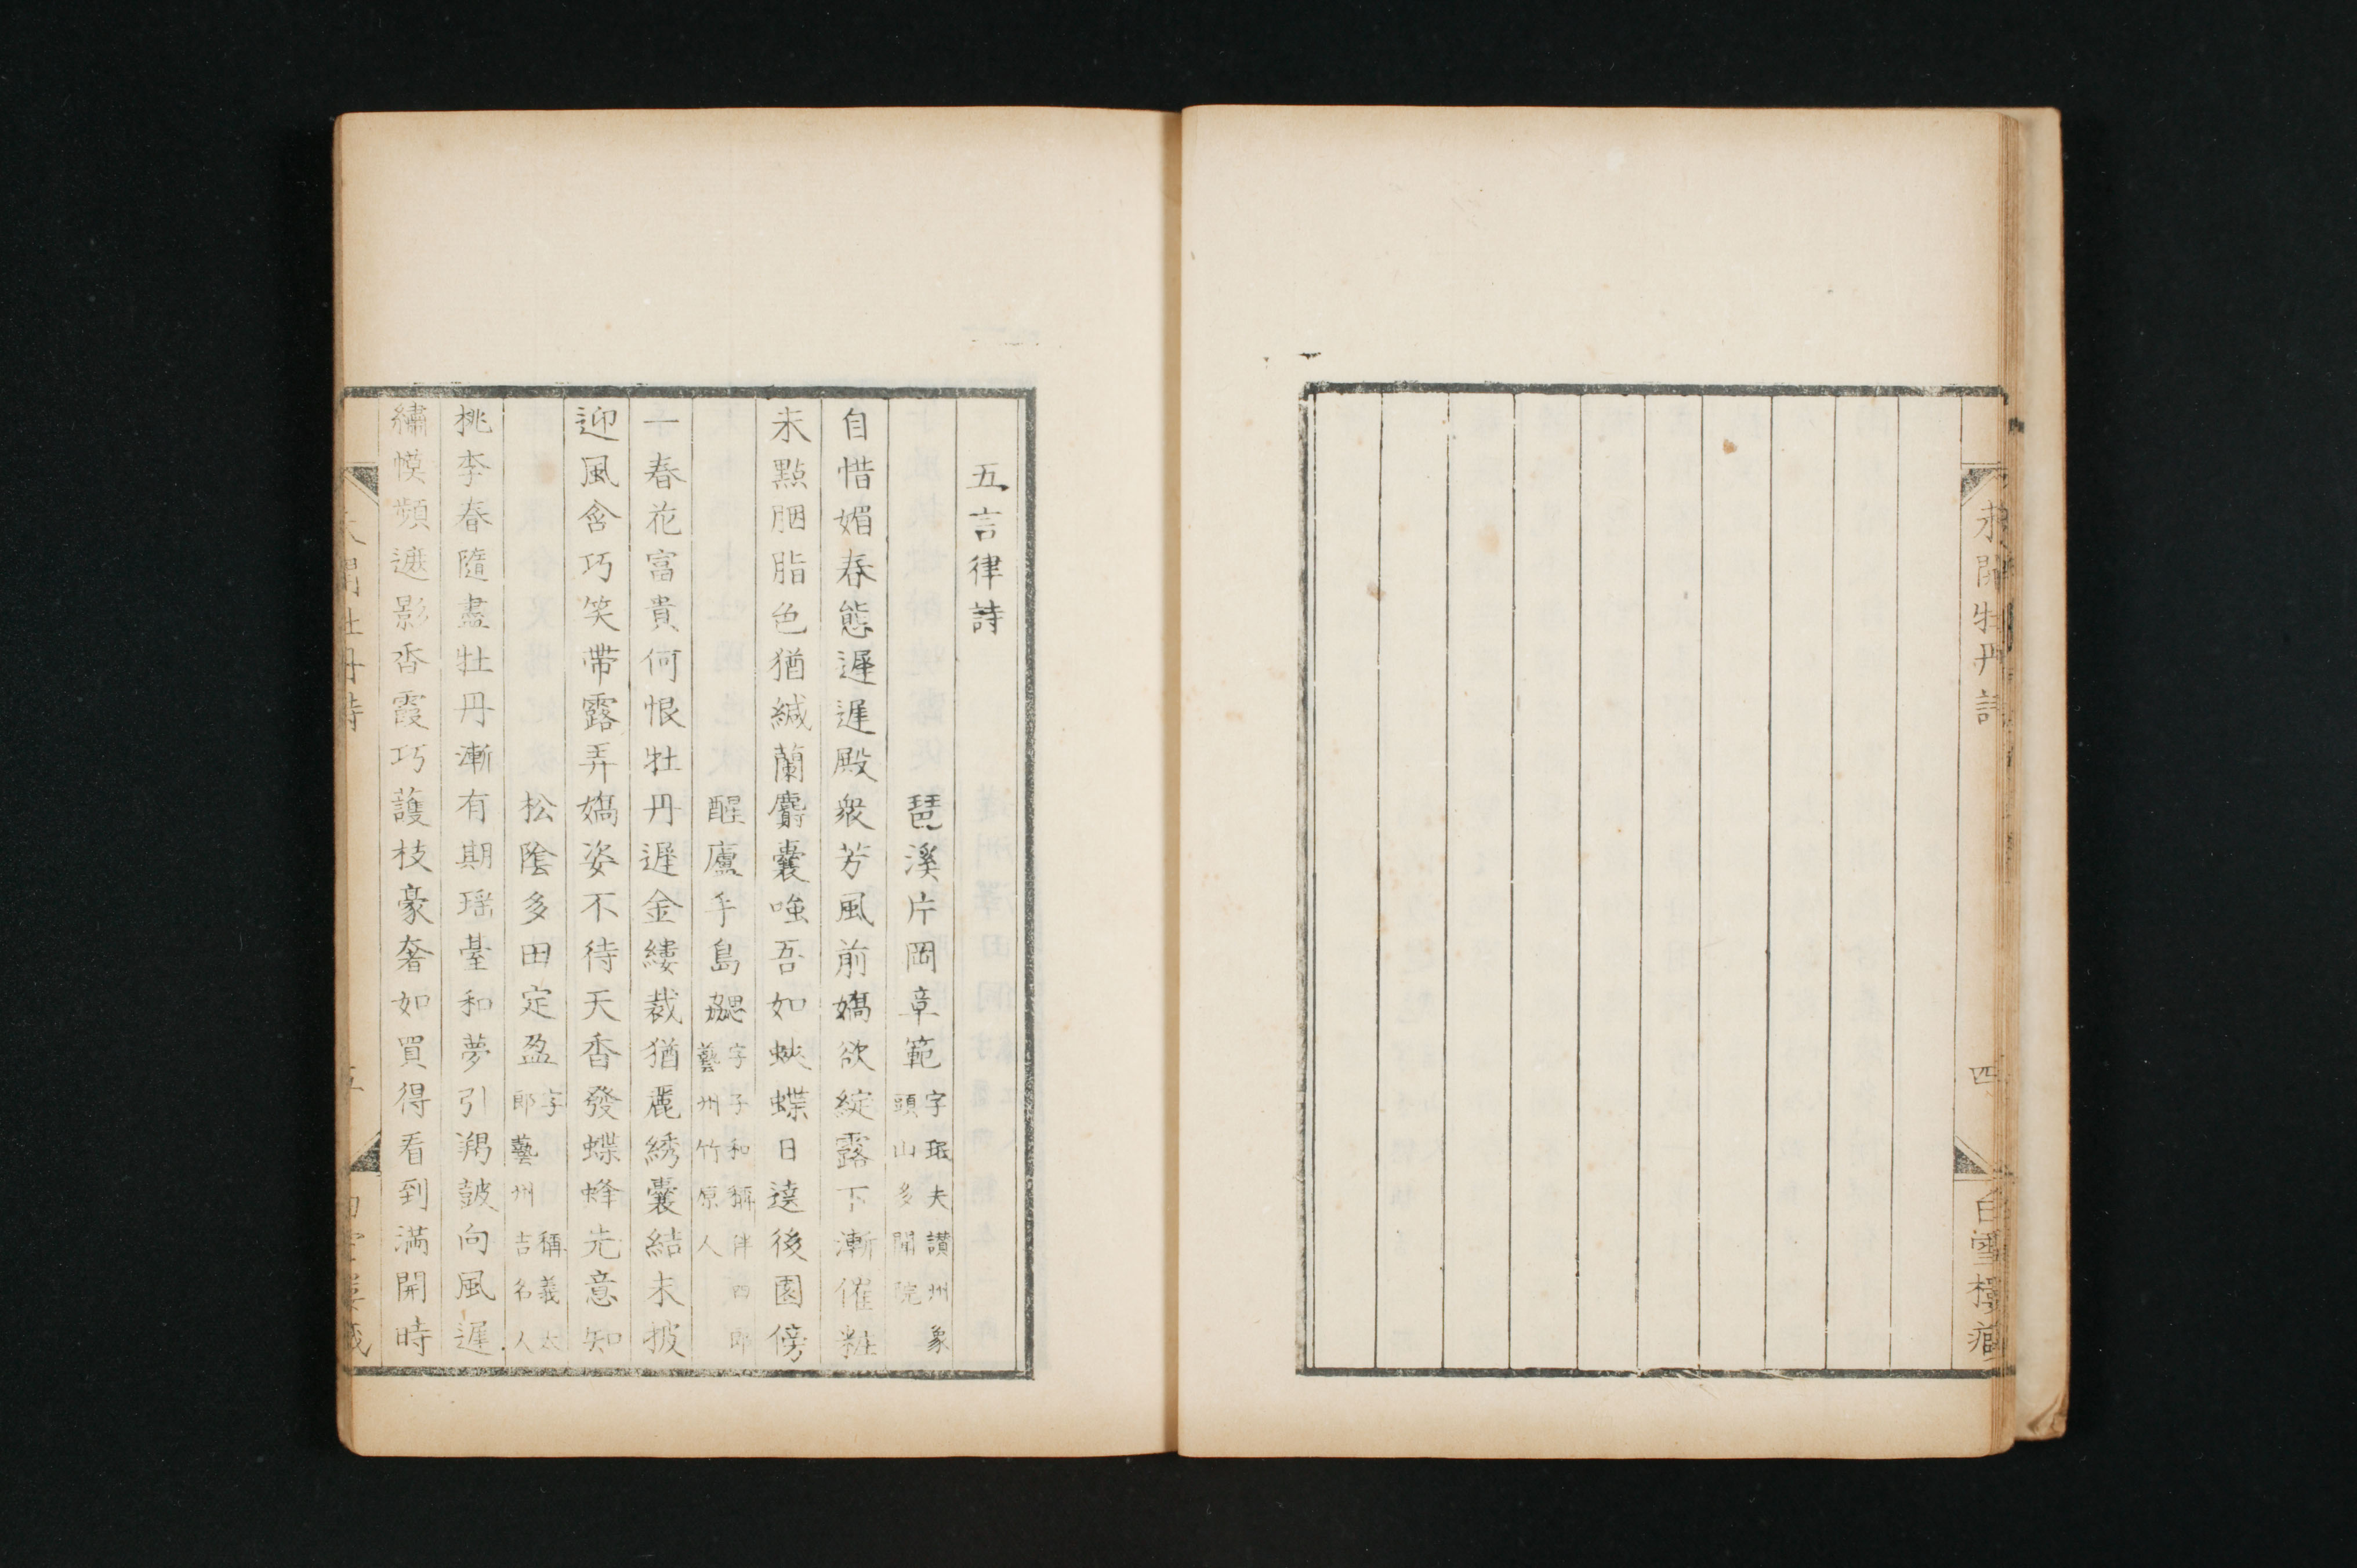 未開牡丹詩
四
白雪樓藏
五言律詩
琵溪片岡章範 字珉夫讃州象
頭山多聞院
自惜媚春態遲遲殿衆芳風前嬌欲綻露下漸催粧
未點胭脂色猶緘蘭麝囊嗤吾如蛺蝶日遶後園傍
醒廬平島勰 字子和稱伴四郎
藝州竹原人
一春花富貴何恨牡丹遲金縷裁猶麗綉囊結未披
迎風含巧笑帶露弄嬌姿不待天香發蝶蜂先意知
松陰多田定盈 字 稱義太
郎藝州吉名人
桃李春隨盡牡丹漸有期瑶臺和夢引羯鼓向風遲
繡幙頻遮影香霞巧護枝豪奢如買得看到滿開時